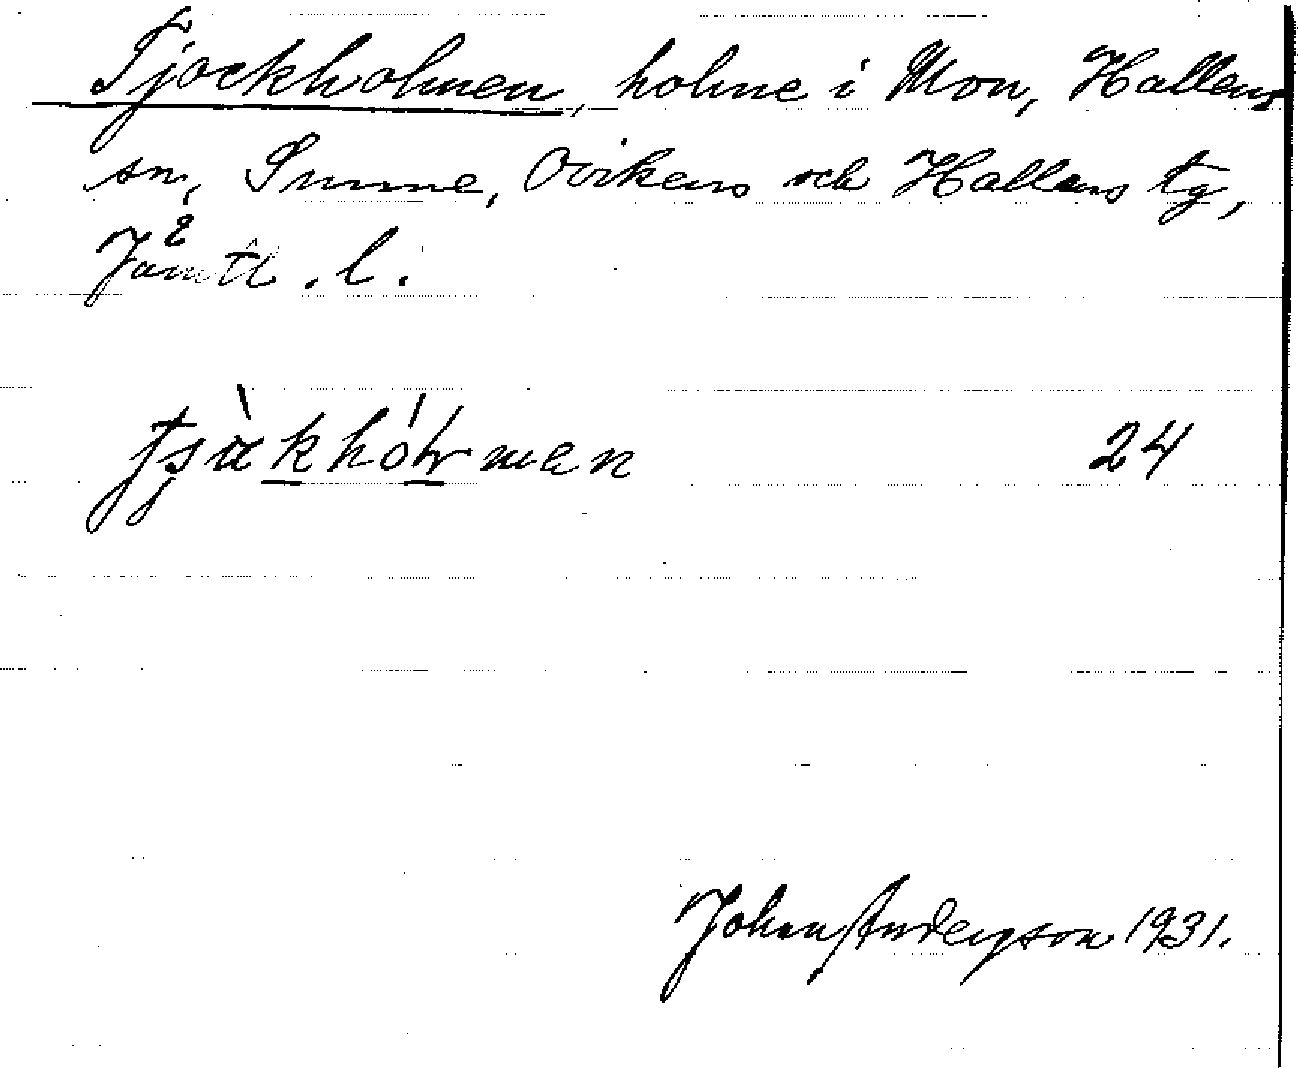 Tjockholmen, holme i Mon, Hallens
sn, Sunne, Ovikens och Hallens tg,
Jämtl. l.
24
John Anderson 1931.